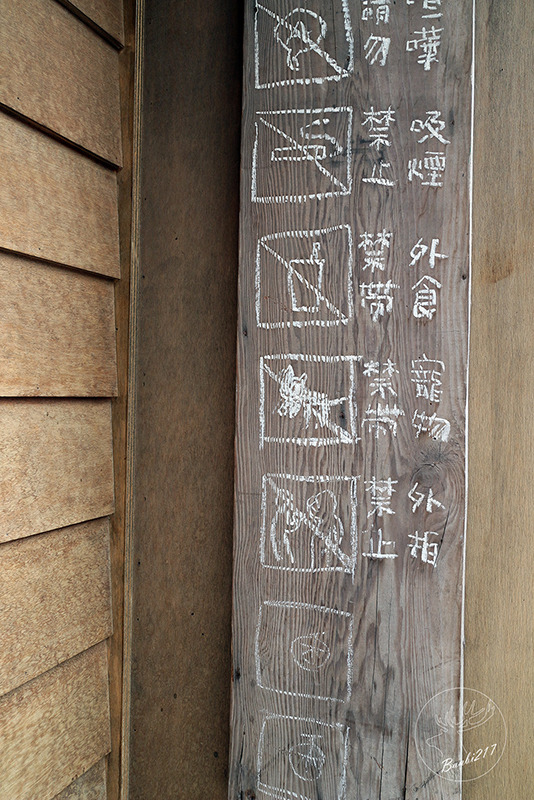 請勿
喧嘩
禁止
吸煙
禁帶
外食
禁帶
寵物
禁止
外拍
Bunki217